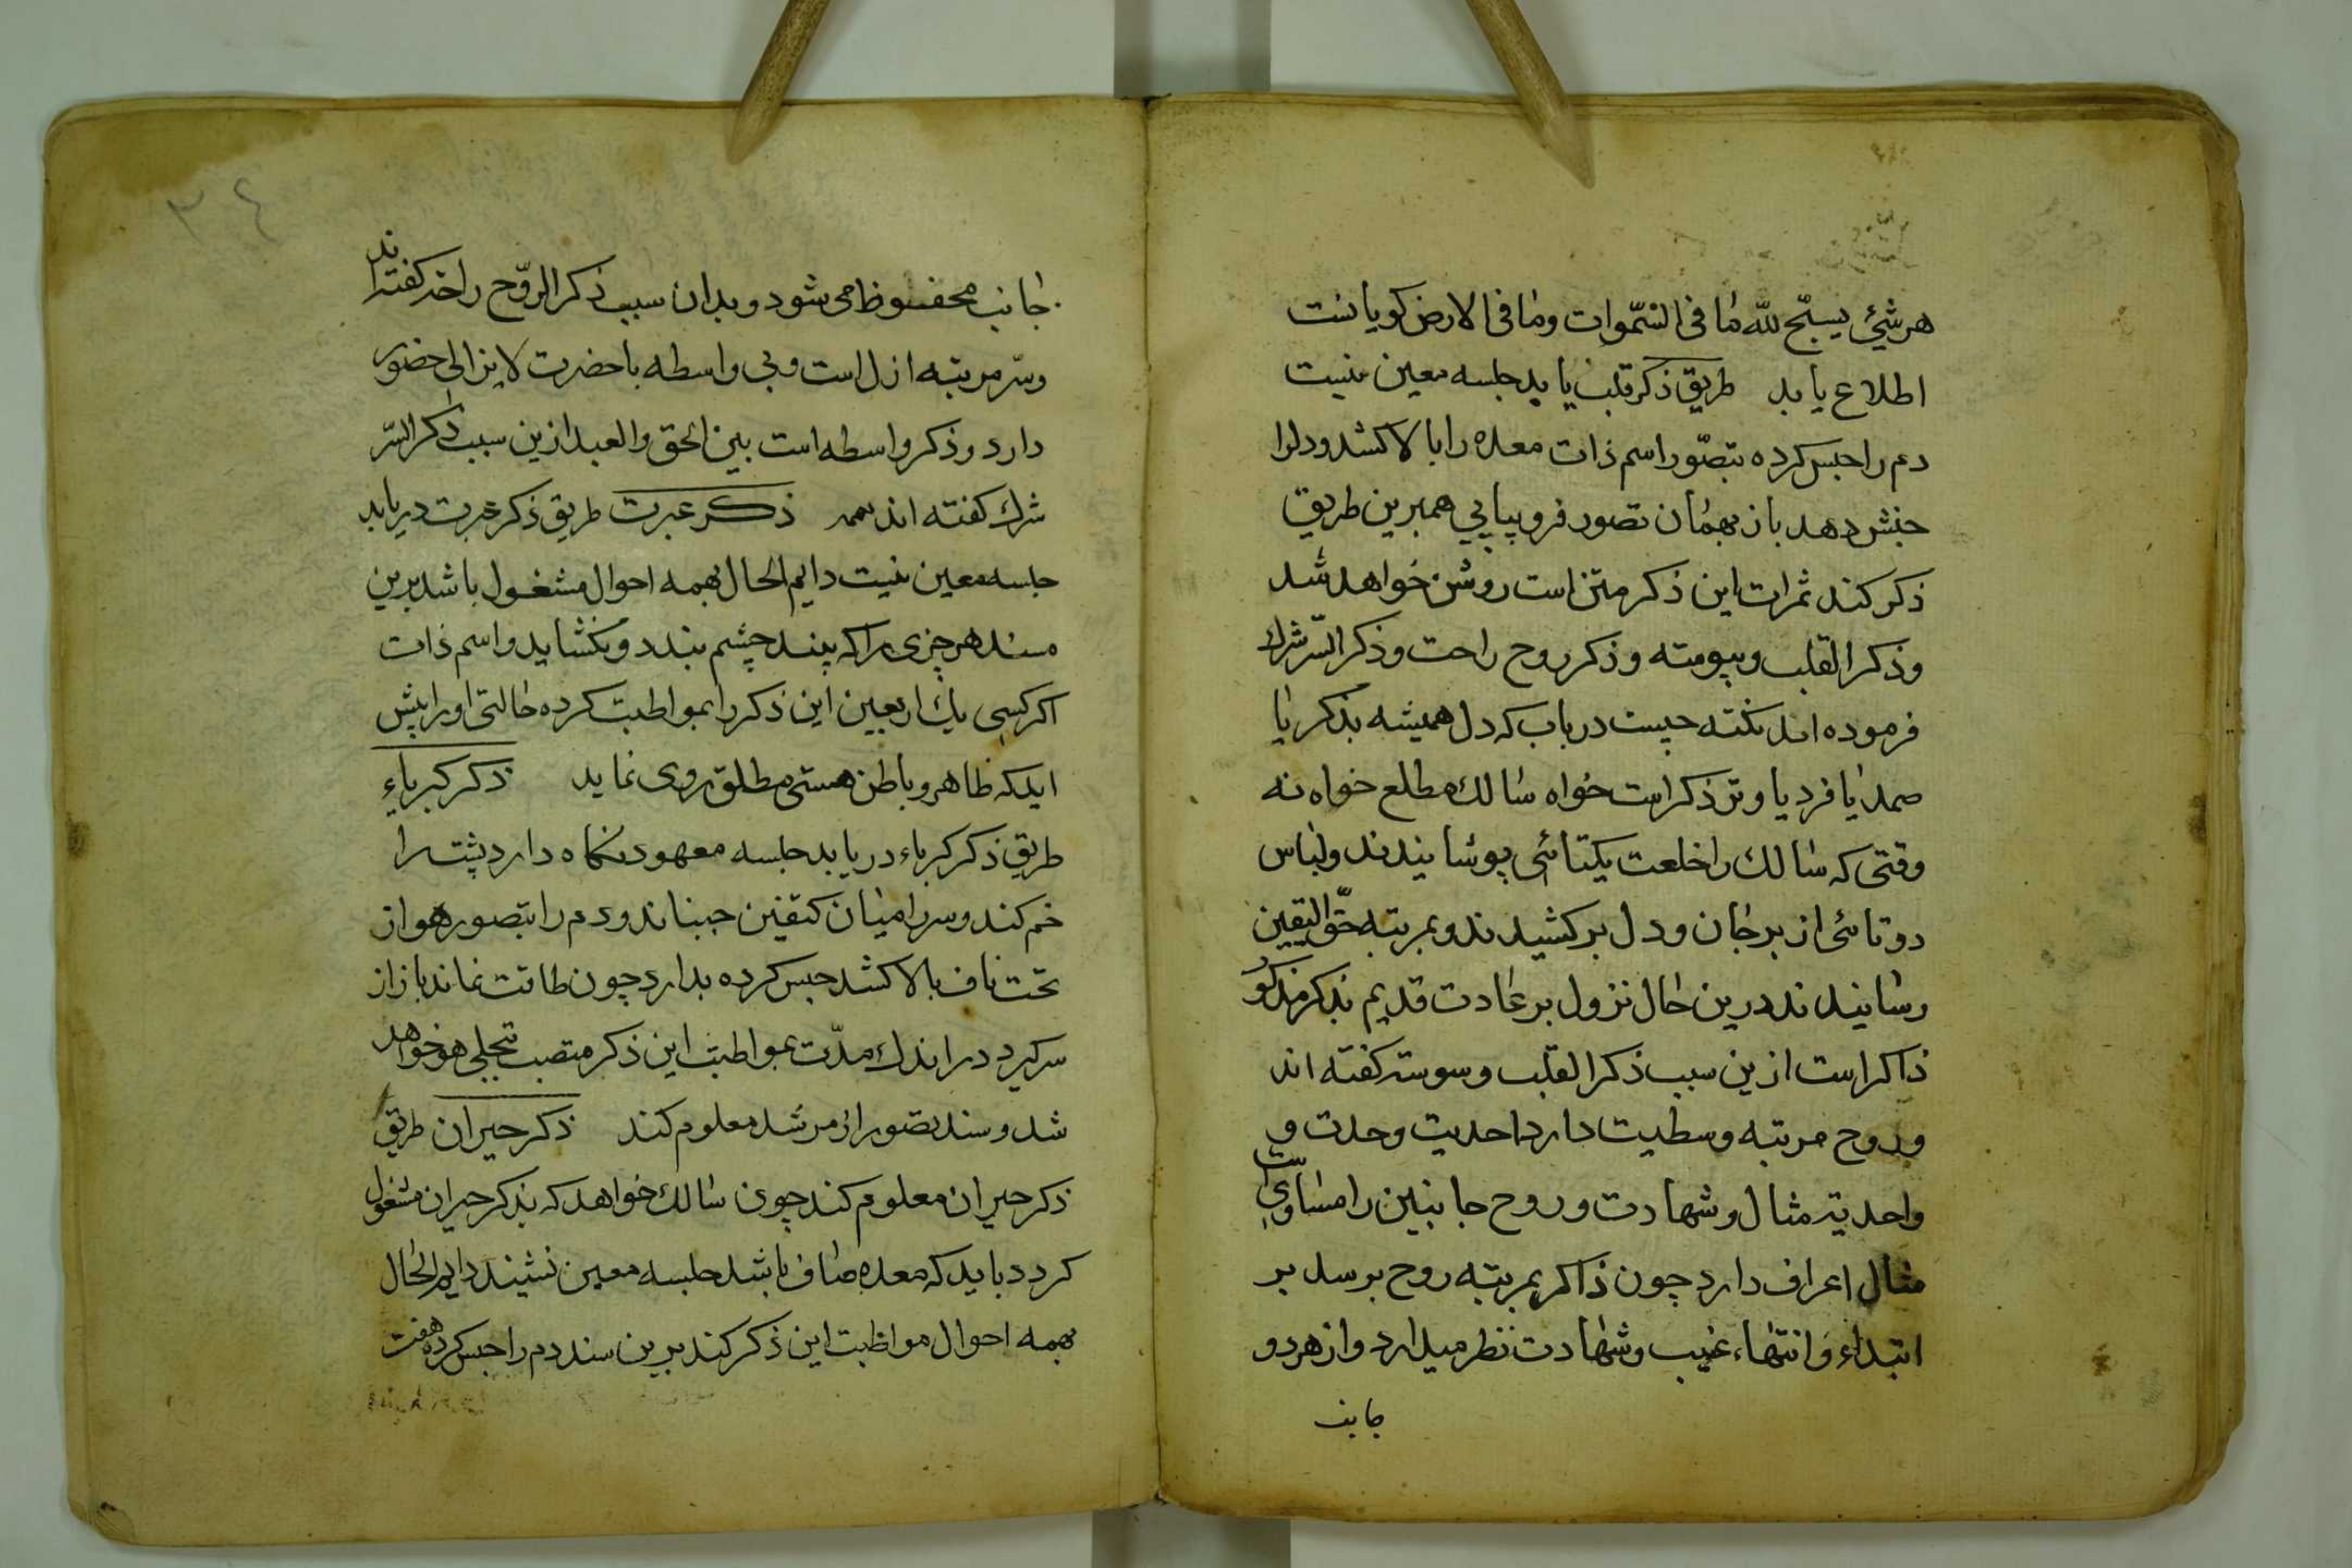 هر شئ یسبّح للّه ما فی السّموات وما فی الارض کویاست
اطلاع یابد طریق ذکر قلب یابد جلسه معین نیست
دم را حبس کرده بتصّور اسم ذات معده را بالا کشد و دلرا
جنبش دهد باز بهمان تصور فرو پیاپی همبرین طریق
ذکر کند ثمرات این ذکر متن است روشن خواهد شد
وذکر القلب وسوسته وذکر روح راحت وذکر السّر شرك
فرموده اند نکته چیست درباب که دل همیشه بذکر یا
صمد یا فرد یا وتر ذکر است خواه سالك مطلع خواه نه
وقتی که سالك را خلعت یکتائی پوشانیدند ولباس
دوتائی از بر جان ودل برکشیدند و بمرتبه حقّ الیقین
رسانیدند درین حال نزول بر عادت قدیم بذکر مذکور
ذاکر است ازین سبب ذکر القلب وسوسته کفته اند
وروح مرتبه وسطیت دارد احدیت وحدت و
واحدیته مثال وشهادت وروح جانبین را مساویست
مثال اعراف دارد چون ذاکر بمرتبه روح برسد بر
ابتداء وانتهاء غیب وشهادت نظر میدارد واز هردو
جانب
٣٤
جانب محفوظ می شود وبدان سبب ذکر الرّوح راحه کفته اند
وسّر مرتبه ازل است وبی واسطه باحضرت لایزالی حضور
دارد وذکر واسطه است بین الحق والعبد ازین سبب ذکر السّر
شرك کفته اند ذکر عبرت طریق ذکر عبرت دریابد
جلسه معین نیست دایم الحال بهمه احوال مشغول باشد برین
سند هر چزی را که بیند چشم ببندد وبکشاید واسم ذات
اکر کسی یك اربعین این ذکر را بمواظبت کرده حالتی او را پیش
ایدکه ظاهر وباطن هستی مطلق روی نماید ذکر کبریاء
طریق ذکر کبریاء دریابد جلسه معهود نکاه دارد پشت را
خم کند وسر را میان کتفین جنباند ودم را بتصور هو از
تحت ناف بالا کشد حبس کرده بدارد چون طاقت نماند باز از
سر کیرد در اندك مدّت بمواظبت این ذکر منصب تجلی هو خواهد
شد وسند تصور از مرشد معلوم کند ذکر حیران طریق
ذکر حیران معلوم کند چون سالك خواهد که بذکر حیران مشغول
کردد باید که معده صاف باشد جلسه معین نشیند دایم الحال
بهمه احوال مواظبت این ذکر کند برین سند دم را حبس کرده هفت